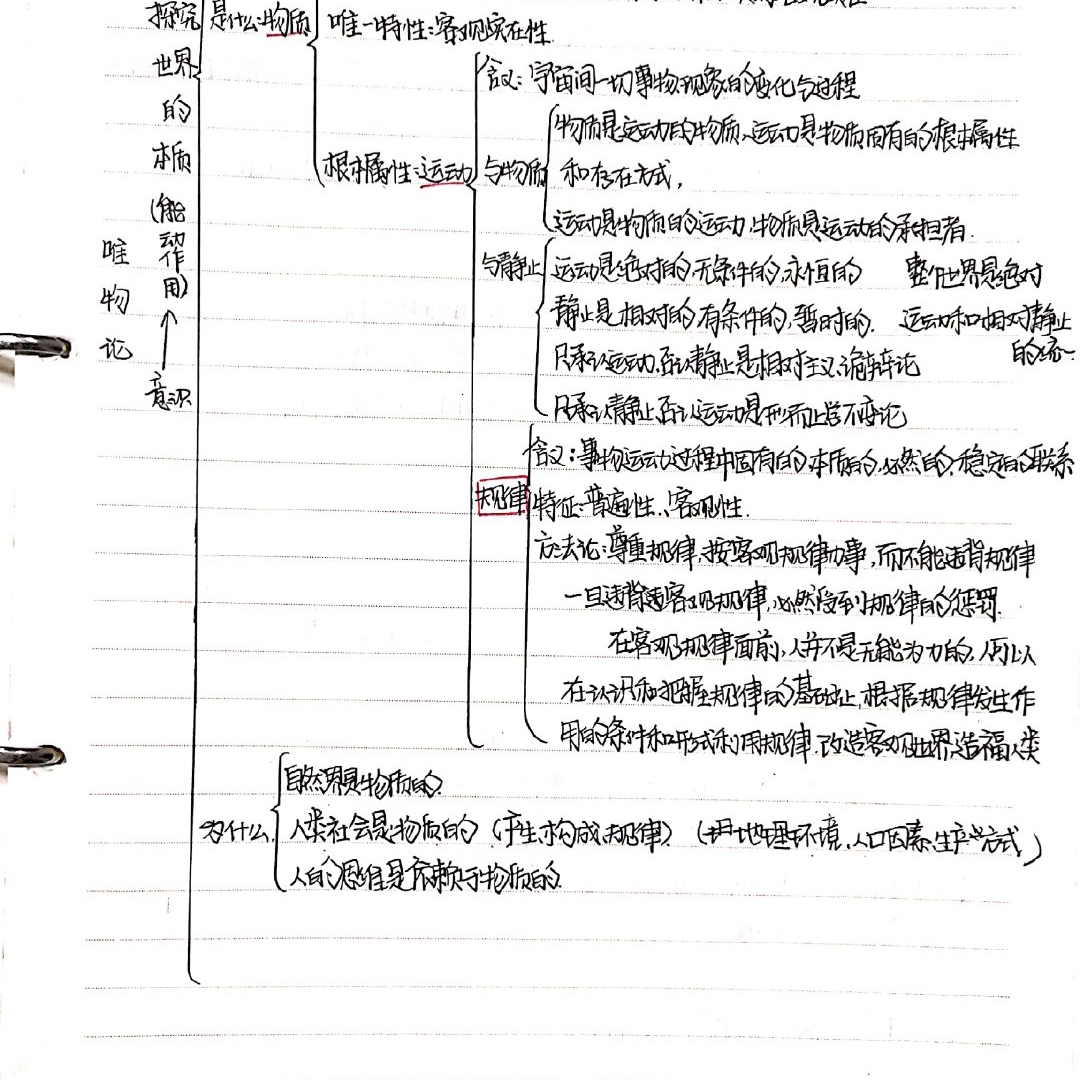 探究
世界
的
本质
(能
动
作
用)
意识
唯
物
论
是什么:物质
唯一特性:客观实在性.
根本属性:运动
含义:宇宙间一切事物、现象的变化与过程
与物质
物质是运动的物质、运动是物质固有的根本属性
和存在方式,
运动是物质的运动,物质是运动的承担者.
与静止
运动是绝对的,无条件的,永恒的
整个世界是绝对
静止是相对的,有条件的,暂时的.
运动和相对静止
的统一
只承认运动,否认静止是相对主义、诡辩论
只承认静止,否认运动是形而上学不变论
规律
含义:事物运动过程中固有的,本质的,必然的,稳定的联系
特征:普遍性、客观性.
方法论:尊重规律,按客观规律办事,而不能违背规律
一旦违背客观规律,必然受到规律的惩罚.
在客观规律面前,人并不是无能为力的,人可以
在认识和把握规律的基础上,根据规律发生作
用的条件和形式利用规律,改造客观世界,造福人类
为什么
自然界是物质的.
人类社会是物质的(产生、构成、规律)(地理环境,人口因素,生产方式,)
人的思维是依赖于物质的.